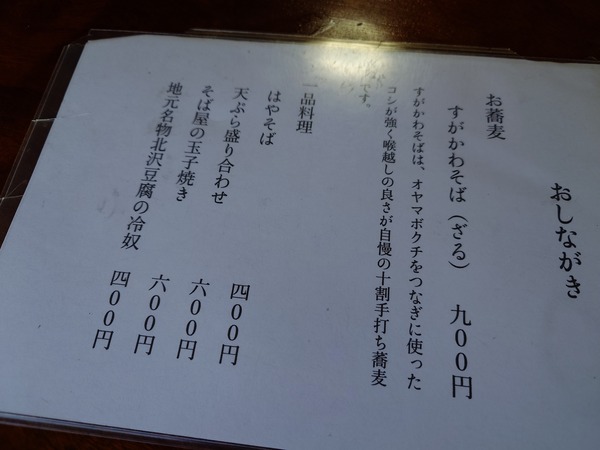 おしながき
お蕎麦
すがかわそば（ざる）　九００円
すがかわそばは、オヤマボクチをつなぎに使った
コシが強く喉越しの良さが自慢の十割手打ち蕎麦
です。
一品料理
はやそば　四００円
天ぷら盛り合わせ　六００円
そば屋の玉子焼き　六００円
地元名物北沢豆腐の冷奴　四００円